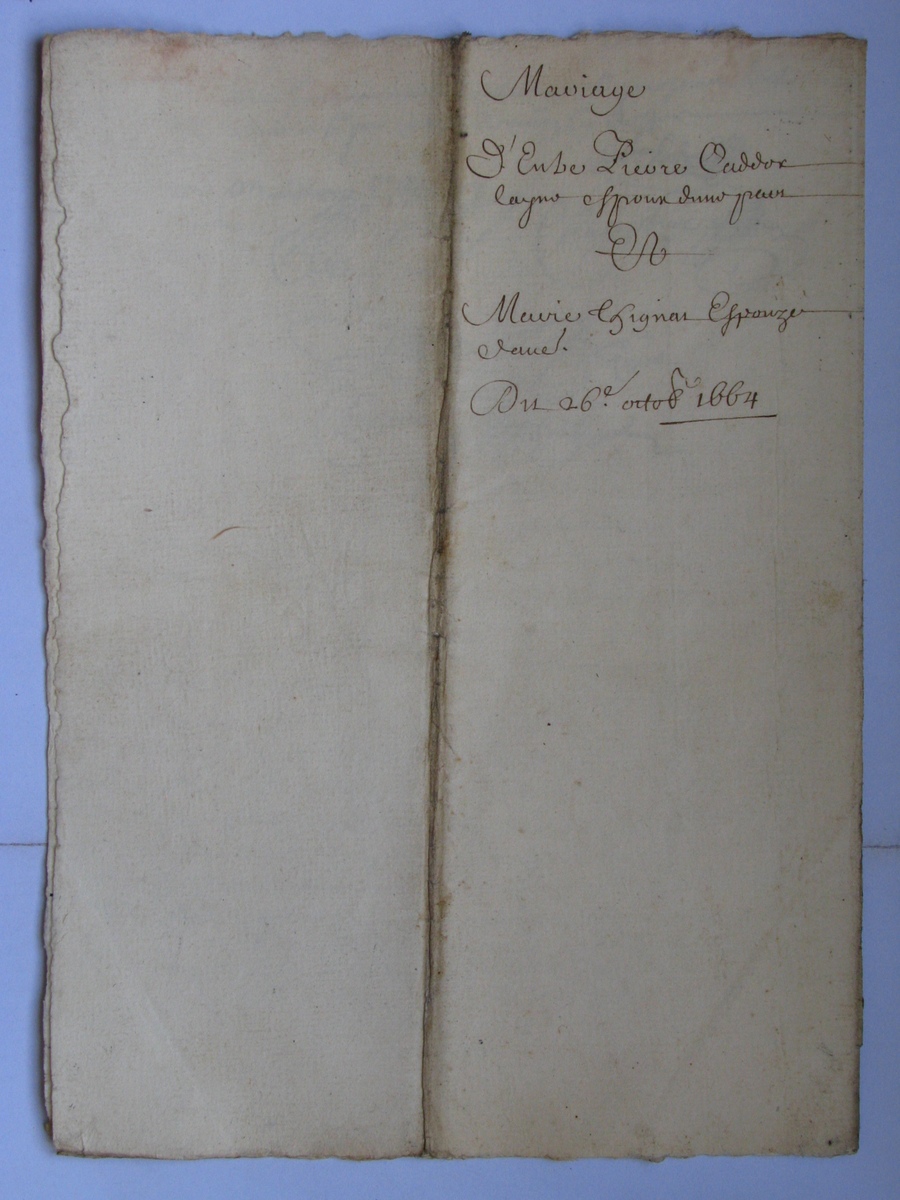 Mariage
D'Entre Pierre Caddor
layne espoux dune part
Et
Marie Chignat Espouze
d'aue.
Du 26e octob 1664